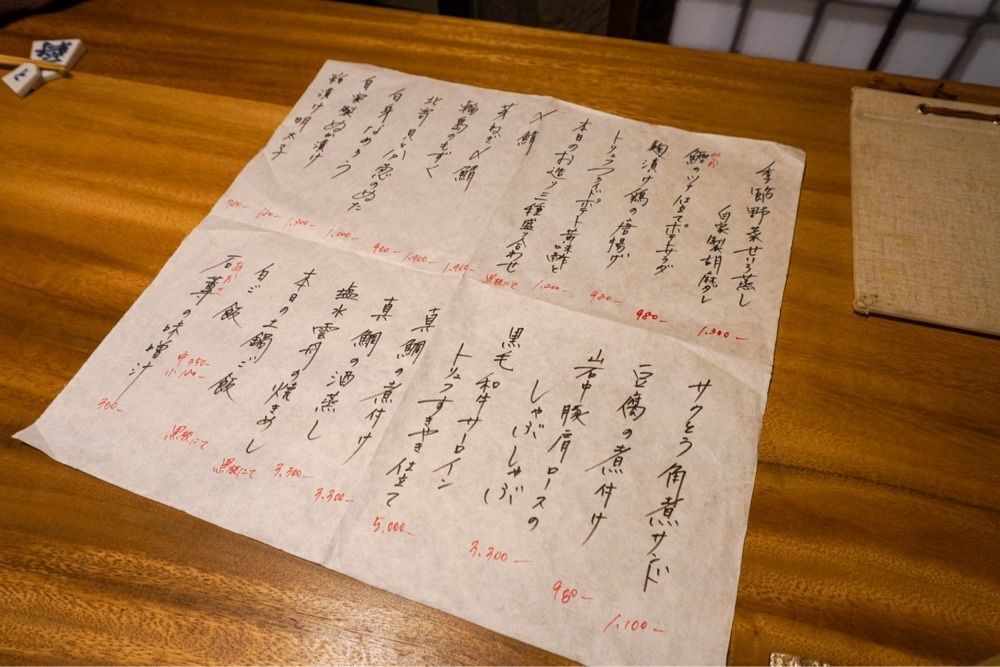 季節野菜せいろ蒸し
自家製胡麻ダレ
1,300-
鰹のツナ仕立てポテトサラダ
かつお
980-
麹漬け鶏の唐揚げ
980-
トリュフフライドポテト
1,200-
本日のお造り三種盛り合わせ
黒板にて
〆鯖
1,400-
芽ねぎ〆鯖
1,400-
輪島のもずく
900-
北寄貝と分葱のぬた
1,000-
白身なめろう
1,300-
自家製ぬか漬け
粕漬け明太子
サクとろ角煮サンド
1,100-
豆腐の煮付け
980-
山中豚肩ロースの
しゃぶしゃぶ
3,300-
黒毛和牛サーロイン
トリュフすきやき仕立て
5,000-
真鯛の煮付け
真鯛の酒蒸し
3,300-
塩水雲丹の焼きめし
3,300-
本日の土鍋ご飯
黒板にて
白ご飯
石蓴の味噌汁
あおさ
300-